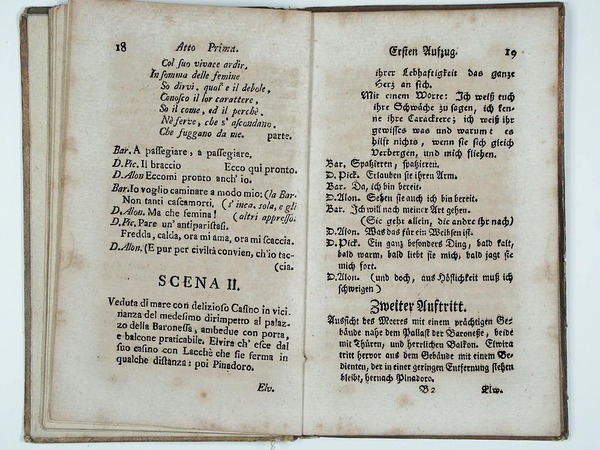 18 Atto Prima.
Col ſuo vivace ardir.
In ſomma delle femine
So dirvi, qual' e il debole,
Conoſco il lor carattere,
So il come, ed il perchè.
Nè ſerve, che s' aſcondano,
Che fuggano da me. parte.
Bar. A paſſegiare, a paſſegiare.
D. Pic. Il braccio Ecco qui pronto.
D. Alon Eccomi pronto anch' io.
Bar. Io voglio caminare a modo mio; (la Bar.
Non tanti caſcamorti, (s' inca. ſola, e gli
D. Alon. Ma che femina! (altri appreſſo.
D. Pic. Pare un' antipariſtaſi.
Fredda, calda, ora mi ama, ora mi ſcaccia.
D. Alon. (E pur per civiltá convien, ch'io tac-
(cia.
SCENA II.
Veduta di mare con delizioſo Caſino in vici-
nanza del medeſimo dirimpetto al palaz-
zo della Baroneſſa, ambedue con porta,
e balcone praticabile. Elvira ch' eſce dal
ſuo caſino con Lacchè che ſie ferma in
qualche diſtanza: poi Pinadoro.
Elv.
Erſten Aufzug. 19
ihrer Lebhaftigkeit das ganze
Herz an ſich.
Mit einem Worte: Ich weiß euch
ihre Schwäche zu ſagen, ich ken-
ne ihre Caracktere; ich weiß ihr
gewiſſes was und warum: es
hilft nichts, wenn ſie ſich gleich
verbergen, und mich fliehen.
Bar. Spatzieren, ſpatzieren.
D. Pick. Erlauben ſie ihren Arm.
Bar. Da, ich bin bereit.
D. Alon. Sehen ſie auch ich bin bereit.
Bar. Ich will nach meiner Art gehen.
(Sie geht allein, die andre ihr nach)
D. Alon. Was das für ein Weibſen iſt.
D. Pick. Ein ganz beſonders Ding, bald kalt,
bald warm, bald liebt ſie mich, bald jagt ſie
mich fort.
D. Alon. (und doch, aus Höflichkeit muß ich
ſchweigen)
Zweiter Auftritt.
Ausſicht des Meeres mit einem prächtigen Ge-
bäude nahe dem Pallaſt der Baroneße, beide
mit Thüren, und herrlichen Balkon. Elwira
tritt hervor aus dem Gebäude mit einem Be-
dienten, der in einer geringen Entfernung ſtehen
bleibt, hernach Pinadoro.
B 2 Elw.